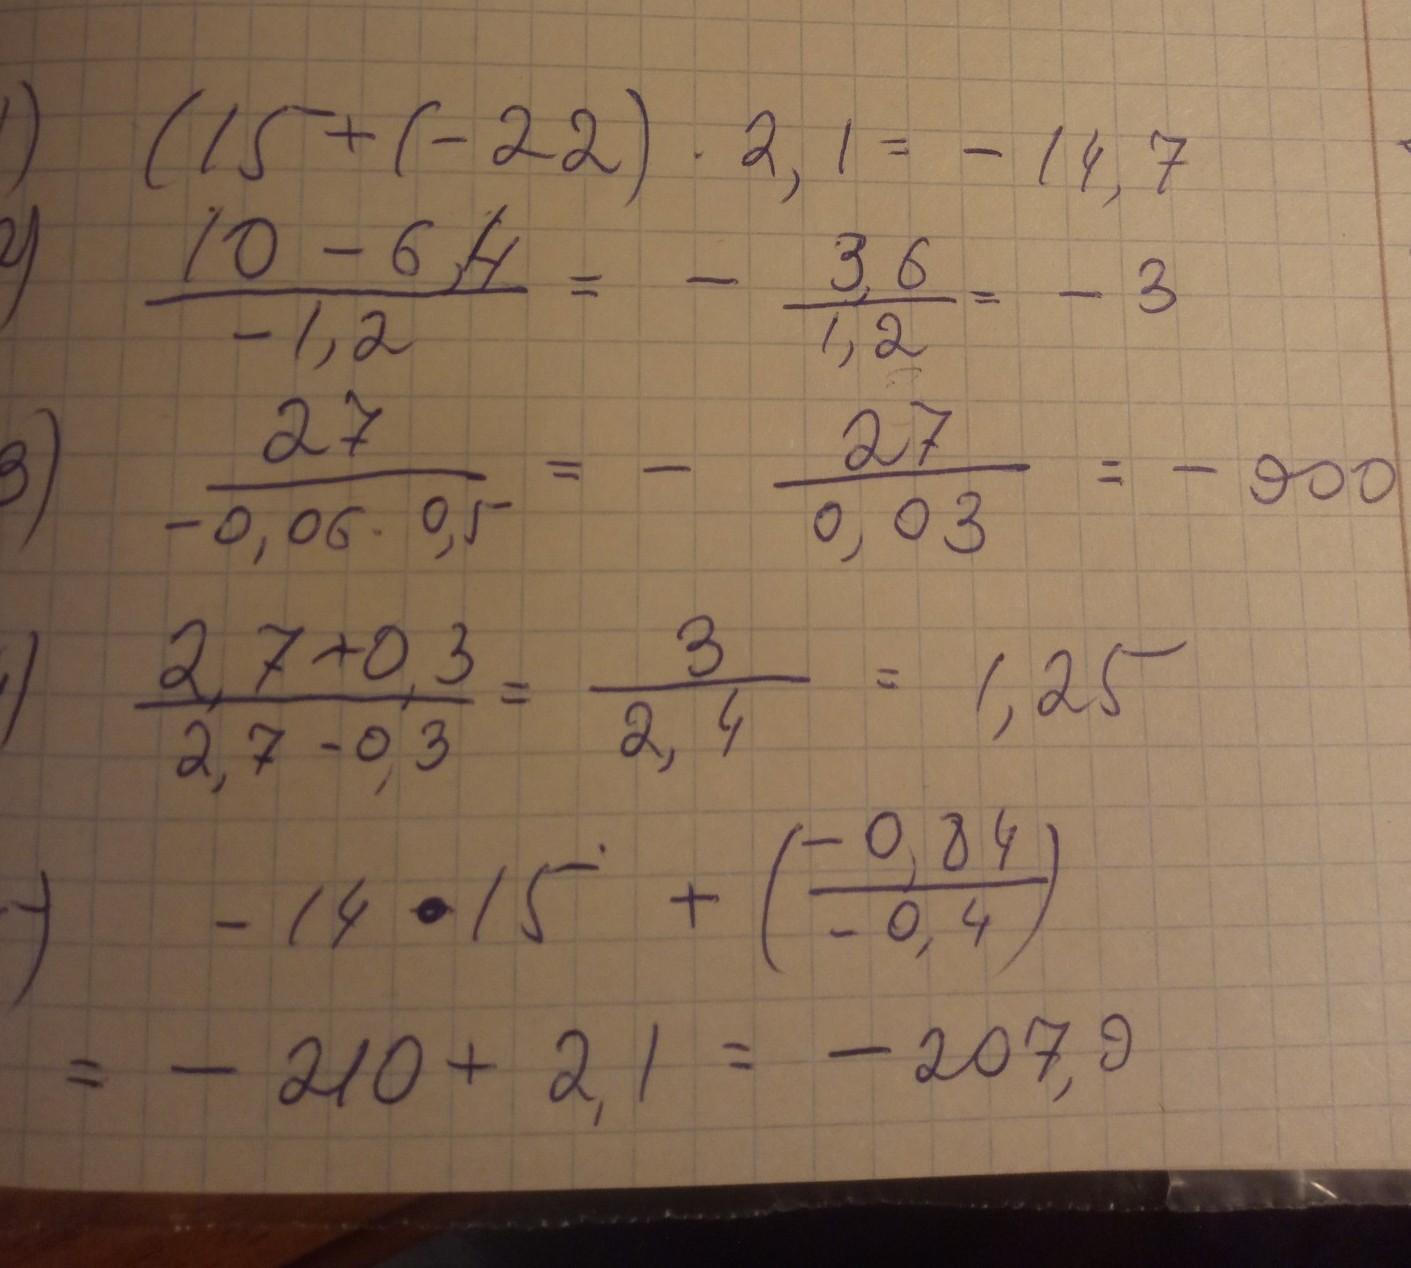 1) (15 + (-22) · 2,1 = - 14,7
2) 10 - 6,4 / -1,2 = - 3,6 / 1,2 = - 3
3) 27 / -0,06 · 0,5 = - 27 / 0,03 = - 900
) 2,7 + 0,3 / 2,7 - 0,3 = 3 / 2,4 = 1,25
) - 14 · 15 + (-0,84 / -0,4)
= - 210 + 2,1 = - 207,9